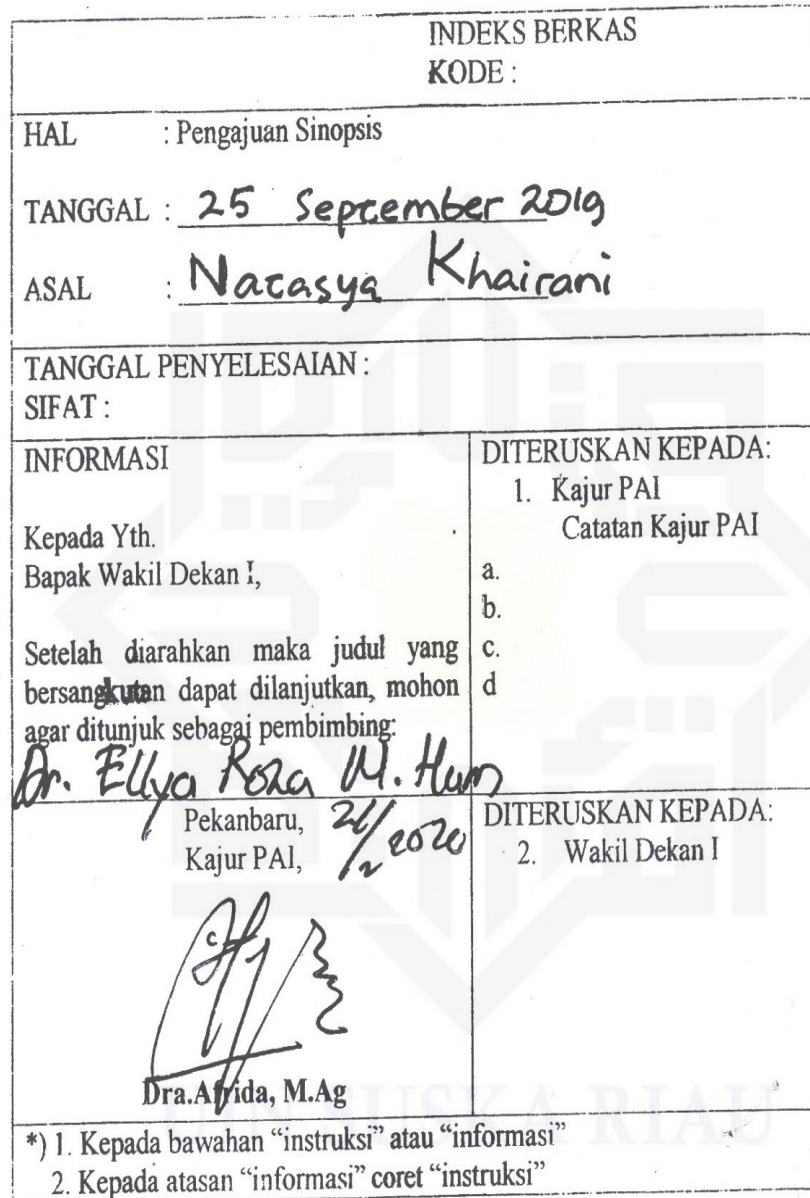 INDEKS BERKAS
KODE :
HAL : Pengajuan Sinopsis
TANGGAL : 25 September 2019
ASAL : Natasya Khairani
TANGGAL PENYELESAIAN :
SIFAT :
INFORMASI
Kepada Yth.
Bapak Wakil Dekan I,
Setelah diarahkan maka judul yang
bersangkutan dapat dilanjutkan, mohon
agar ditunjuk sebagai pembimbing:
Dr. Ellya Roza M. Hum
DITERUSKAN KEPADA:
1. Kajur PAI
Catatan Kajur PAI
a.
b.
c.
d
Pekanbaru, 21/2 2020
Kajur PAI,
Dra.Afrida, M.Ag
DITERUSKAN KEPADA:
2. Wakil Dekan I
UIN SUSKA RIAU
*) 1. Kepada bawahan “instruksi” atau “informasi”
2. Kepada atasan “informasi” coret “instruksi”